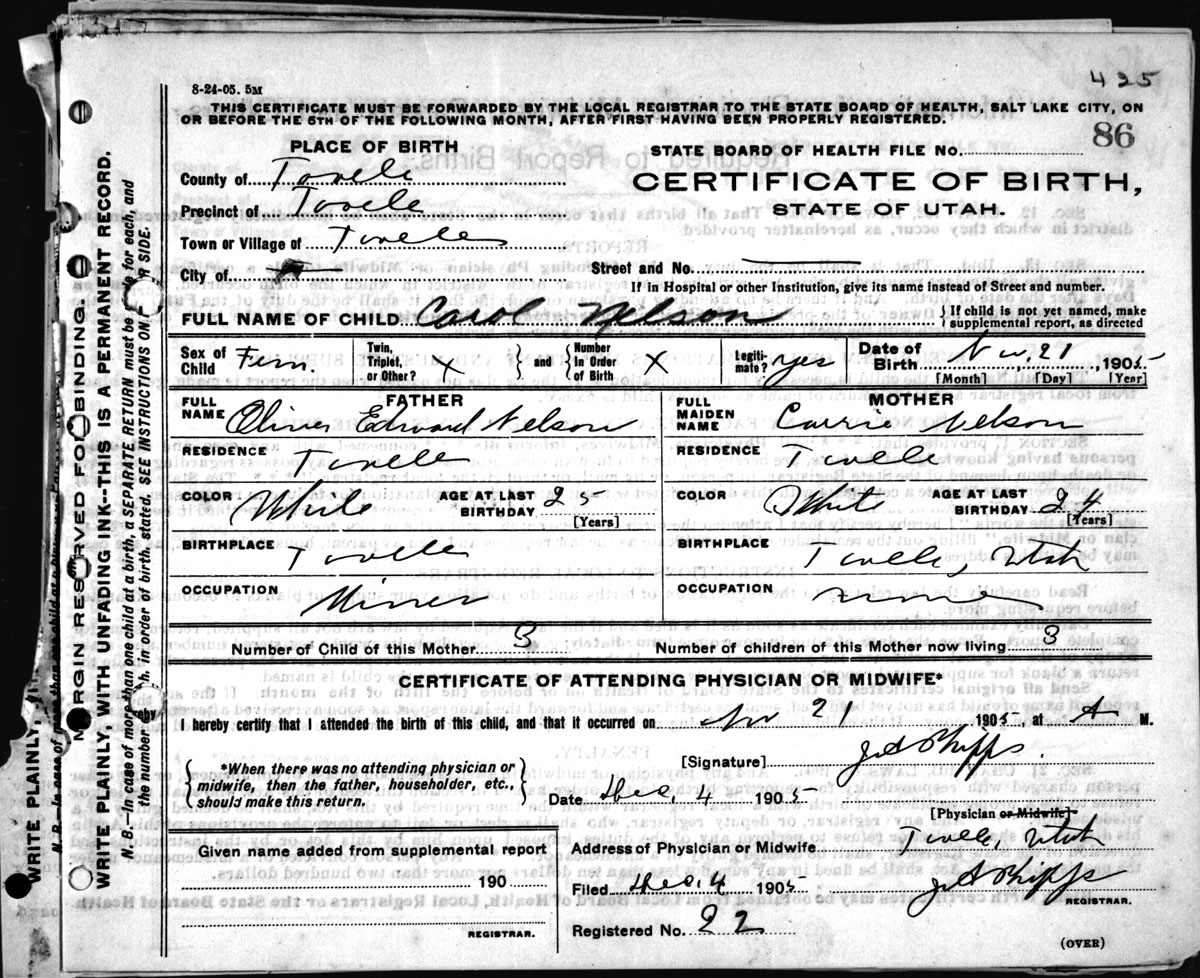 425
8-24-05. 5M
THIS CERTIFICATE MUST BE FORWARDED BY THE LOCAL REGISTRAR TO THE STATE BOARD OF HEALTH, SALT LAKE CITY, ON
OR BEFORE THE 5TH OF THE FOLLOWING MONTH, AFTER FIRST HAVING BEEN PROPERLY REGISTERED.
86
PLACE OF BIRTH
STATE BOARD OF HEALTH FILE NO.
County of Tooele
CERTIFICATE OF BIRTH,
Precinct of Tooele
STATE OF UTAH.
Town or Village of Tooele
City of
Street and No.
If in Hospital or other Institution, give its name instead of Street and number.
FULL NAME OF CHILD Carol Nelson } If child is not yet named, make
supplemental report, as directed
Sex of Child Fem. Twin, Triplet, or Other? X } and { Number In Order of Birth X Legiti- mate? yes Date of Birth Nov, 21, 1905
[Month] [Day] [Year]
FATHER MOTHER
FULL NAME Oliver Edward Nelson FULL MAIDEN NAME Carrie Nelson
RESIDENCE Tooele RESIDENCE Tooele
COLOR White AGE AT LAST BIRTHDAY 25 [Years] COLOR White AGE AT LAST BIRTHDAY 24 [Years]
BIRTHPLACE Tooele BIRTHPLACE Tooele, Utah
OCCUPATION Miner OCCUPATION
Number of Child of this Mother 3 Number of children of this Mother now living 3
CERTIFICATE OF ATTENDING PHYSICIAN OR MIDWIFE*
I hereby certify that I attended the birth of this child, and that it occurred on Nov 21, 1905 at A M.
{ *When there was no attending physician or
midwife, then the father, householder, etc.,
should make this return. }
[Signature] J A Phipps.
Date Dec. 4 1905
[Physician or Midwife]
Given name added from supplemental report
Address of Physician or Midwife Tooele, Utah
190
Filed Dec. 4 1905 J A Phipps
REGISTRAR.
Registered No. 22
REGISTRAR.
(OVER)
MARGIN RESERVED FOR BINDING.
WRITE PLAINLY, WITH UNFADING INK--THIS IS A PERMANENT RECORD.
N. B.—In case of more than one child at a birth, a SEPARATE RETURN must be for each, and
the number h. in order of birth. stated. SEE INSTRUCTIONS ON R SIDE.
WRITE PLAINLY,